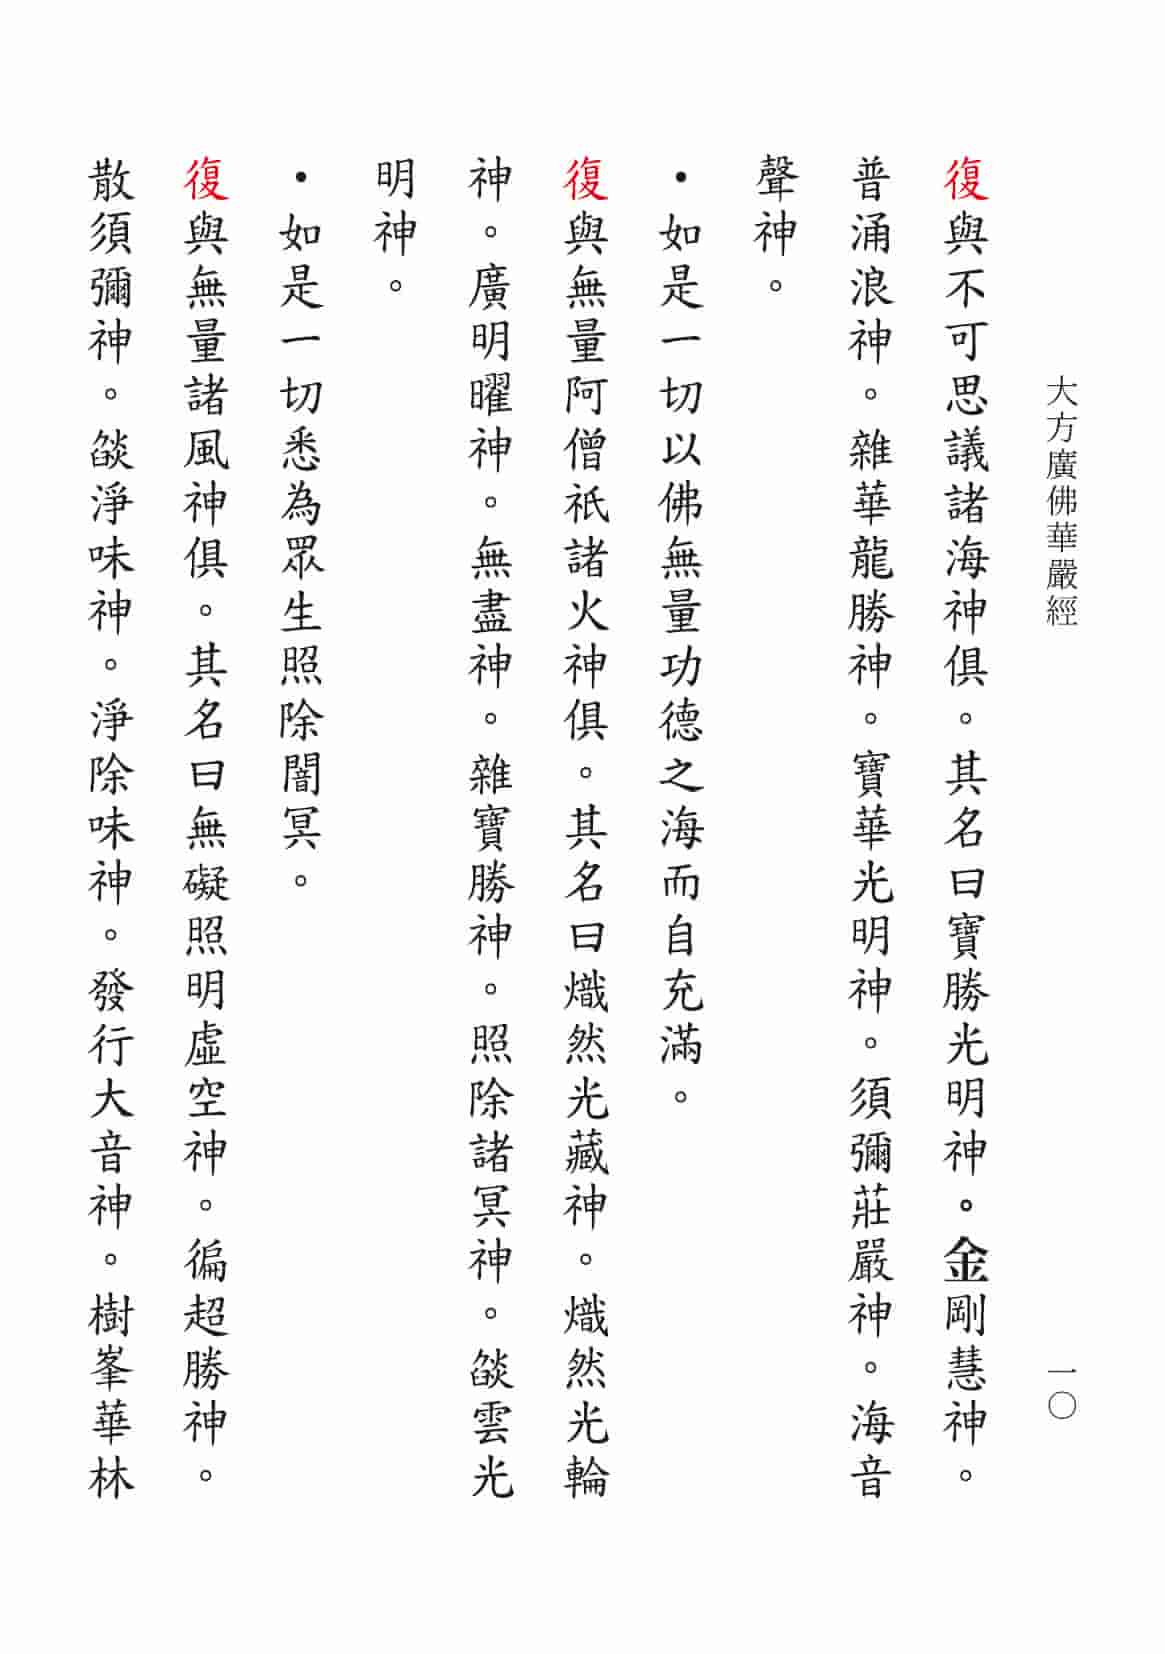 大方廣佛華嚴經
一〇
復與不可思議諸海神俱。其名曰寶勝光明神。金剛慧神。
普涌浪神。雜華龍勝神。寶華光明神。須彌莊嚴神。海音
聲神。
•如是一切以佛無量功德之海而自充滿。
復與無量阿僧祇諸火神俱。其名曰熾然光藏神。熾然光輪
神。廣明曜神。無盡神。雜寶勝神。照除諸冥神。燄雲光
明神。
•如是一切悉為眾生照除闇冥。
復與無量諸風神俱。其名曰無礙照明虛空神。徧超勝神。
散須彌神。燄淨味神。淨除味神。發行大音神。樹峯華林